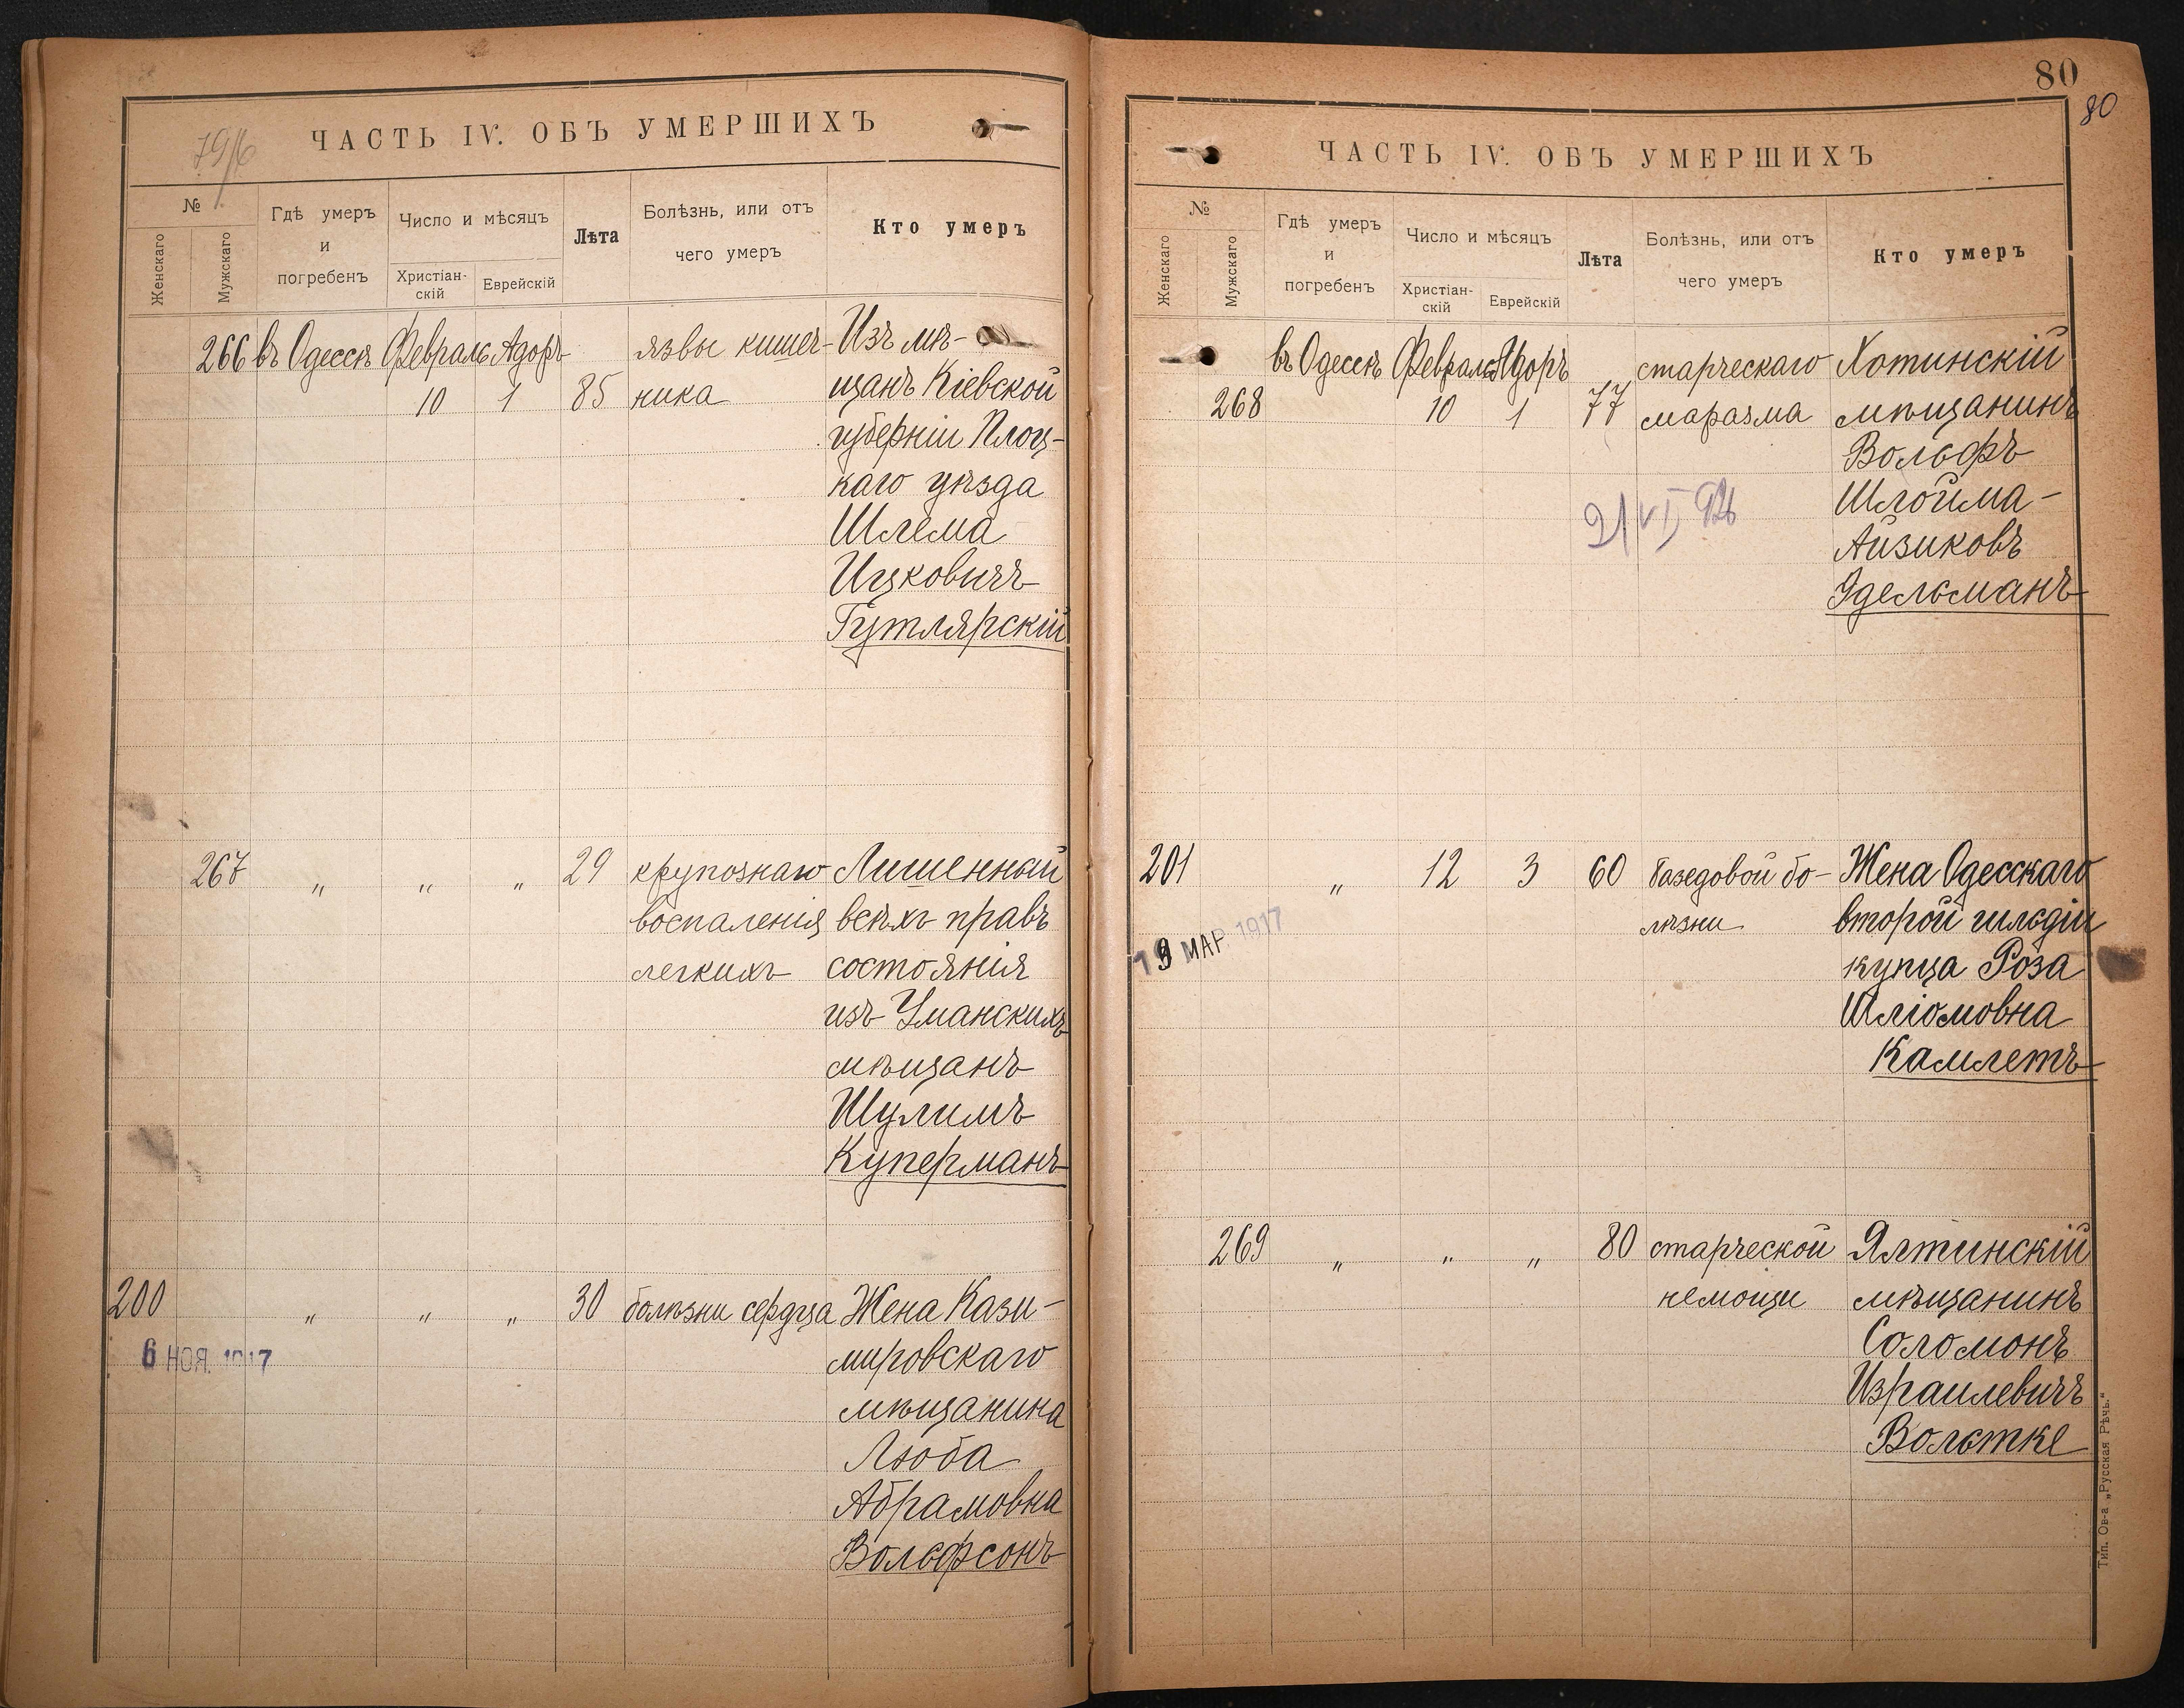 79/б
ЧАСТЬ IV. ОБЪ УМЕРШИХЪ
№
Женскаго
Мужскаго
Гдѣ умеръ
и
погребенъ
Число и мѣсяцъ
Христіан-
скій
Еврейскій
Лѣта
Болѣзнь, или отъ
чего умеръ
Кто умеръ
266 въ Одессѣ Февраль Адоръ язвы кишеч- Изъ мѣ-
10 1 85 ника щанъ Кіевской
губерніи Плоц-
каго уѣзда
Шлема
Ицковичъ
Гутлярскій
267 „ „ „ 29 крупознаго Лишенный
воспаленія всѣхъ правъ
легкихъ состоянія
изъ Уманскихъ
мѣщанъ
Шулимъ
Куперманъ
200 „ „ „ 30 болѣзни сердца Жена Кази-
6 НОЯ. 1917 мировскаго
мѣщанина
Люба
Абрамовна
Вольфсонъ
80
80
ЧАСТЬ IV. ОБЪ УМЕРШИХЪ
№
Женскаго
Мужскаго
Гдѣ умеръ
и
погребенъ
Число и мѣсяцъ
Христіан-
скій
Еврейскій
Лѣта
Болѣзнь, или отъ
чего умеръ
Кто умеръ
въ Одессѣ Февраль Адоръ старческаго Хотинскій
268 10 1 77 маразма мѣщанинъ
Вольфъ
Шлойма-
Айзиковъ
Эдельманъ
201 „ 12 3 60 базедовой бо- Жена Одесскаго
лѣзни второй гильдіи
МАР 1917 купца Роза
Шліомовна
Камлетъ
269 „ „ „ 80 старческой Ялтинскій
немощи мѣщанинъ
Соломонъ
Израилевичъ
Вольтке
Тип. Ов-а „Русская Рѣчь."